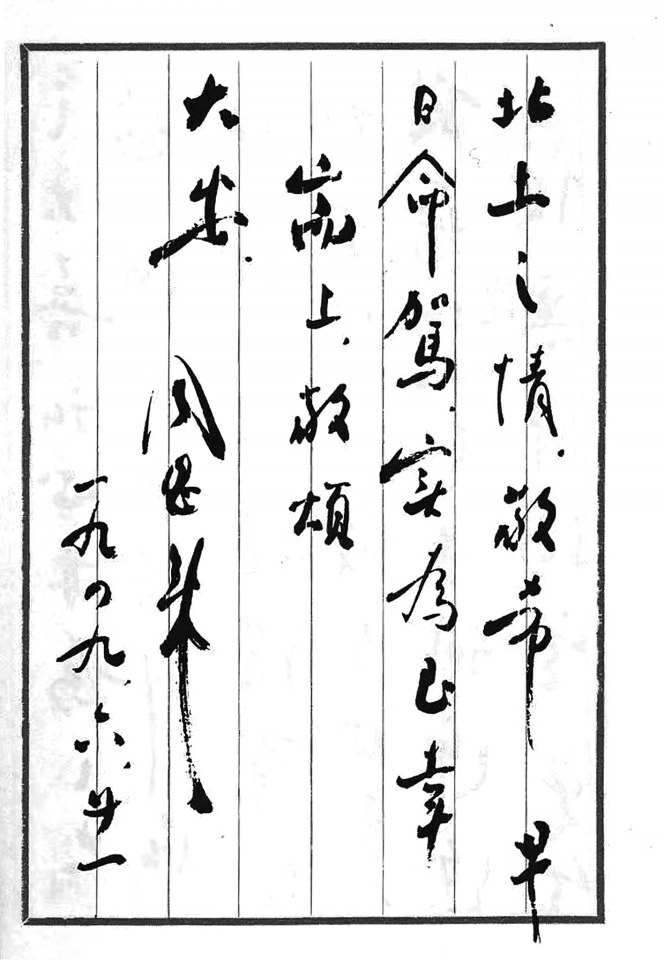 北上之情.敬希早
日命駕.实為至幸
耑上.敬頌
大安.
周恩来
一九四九.六.廿一